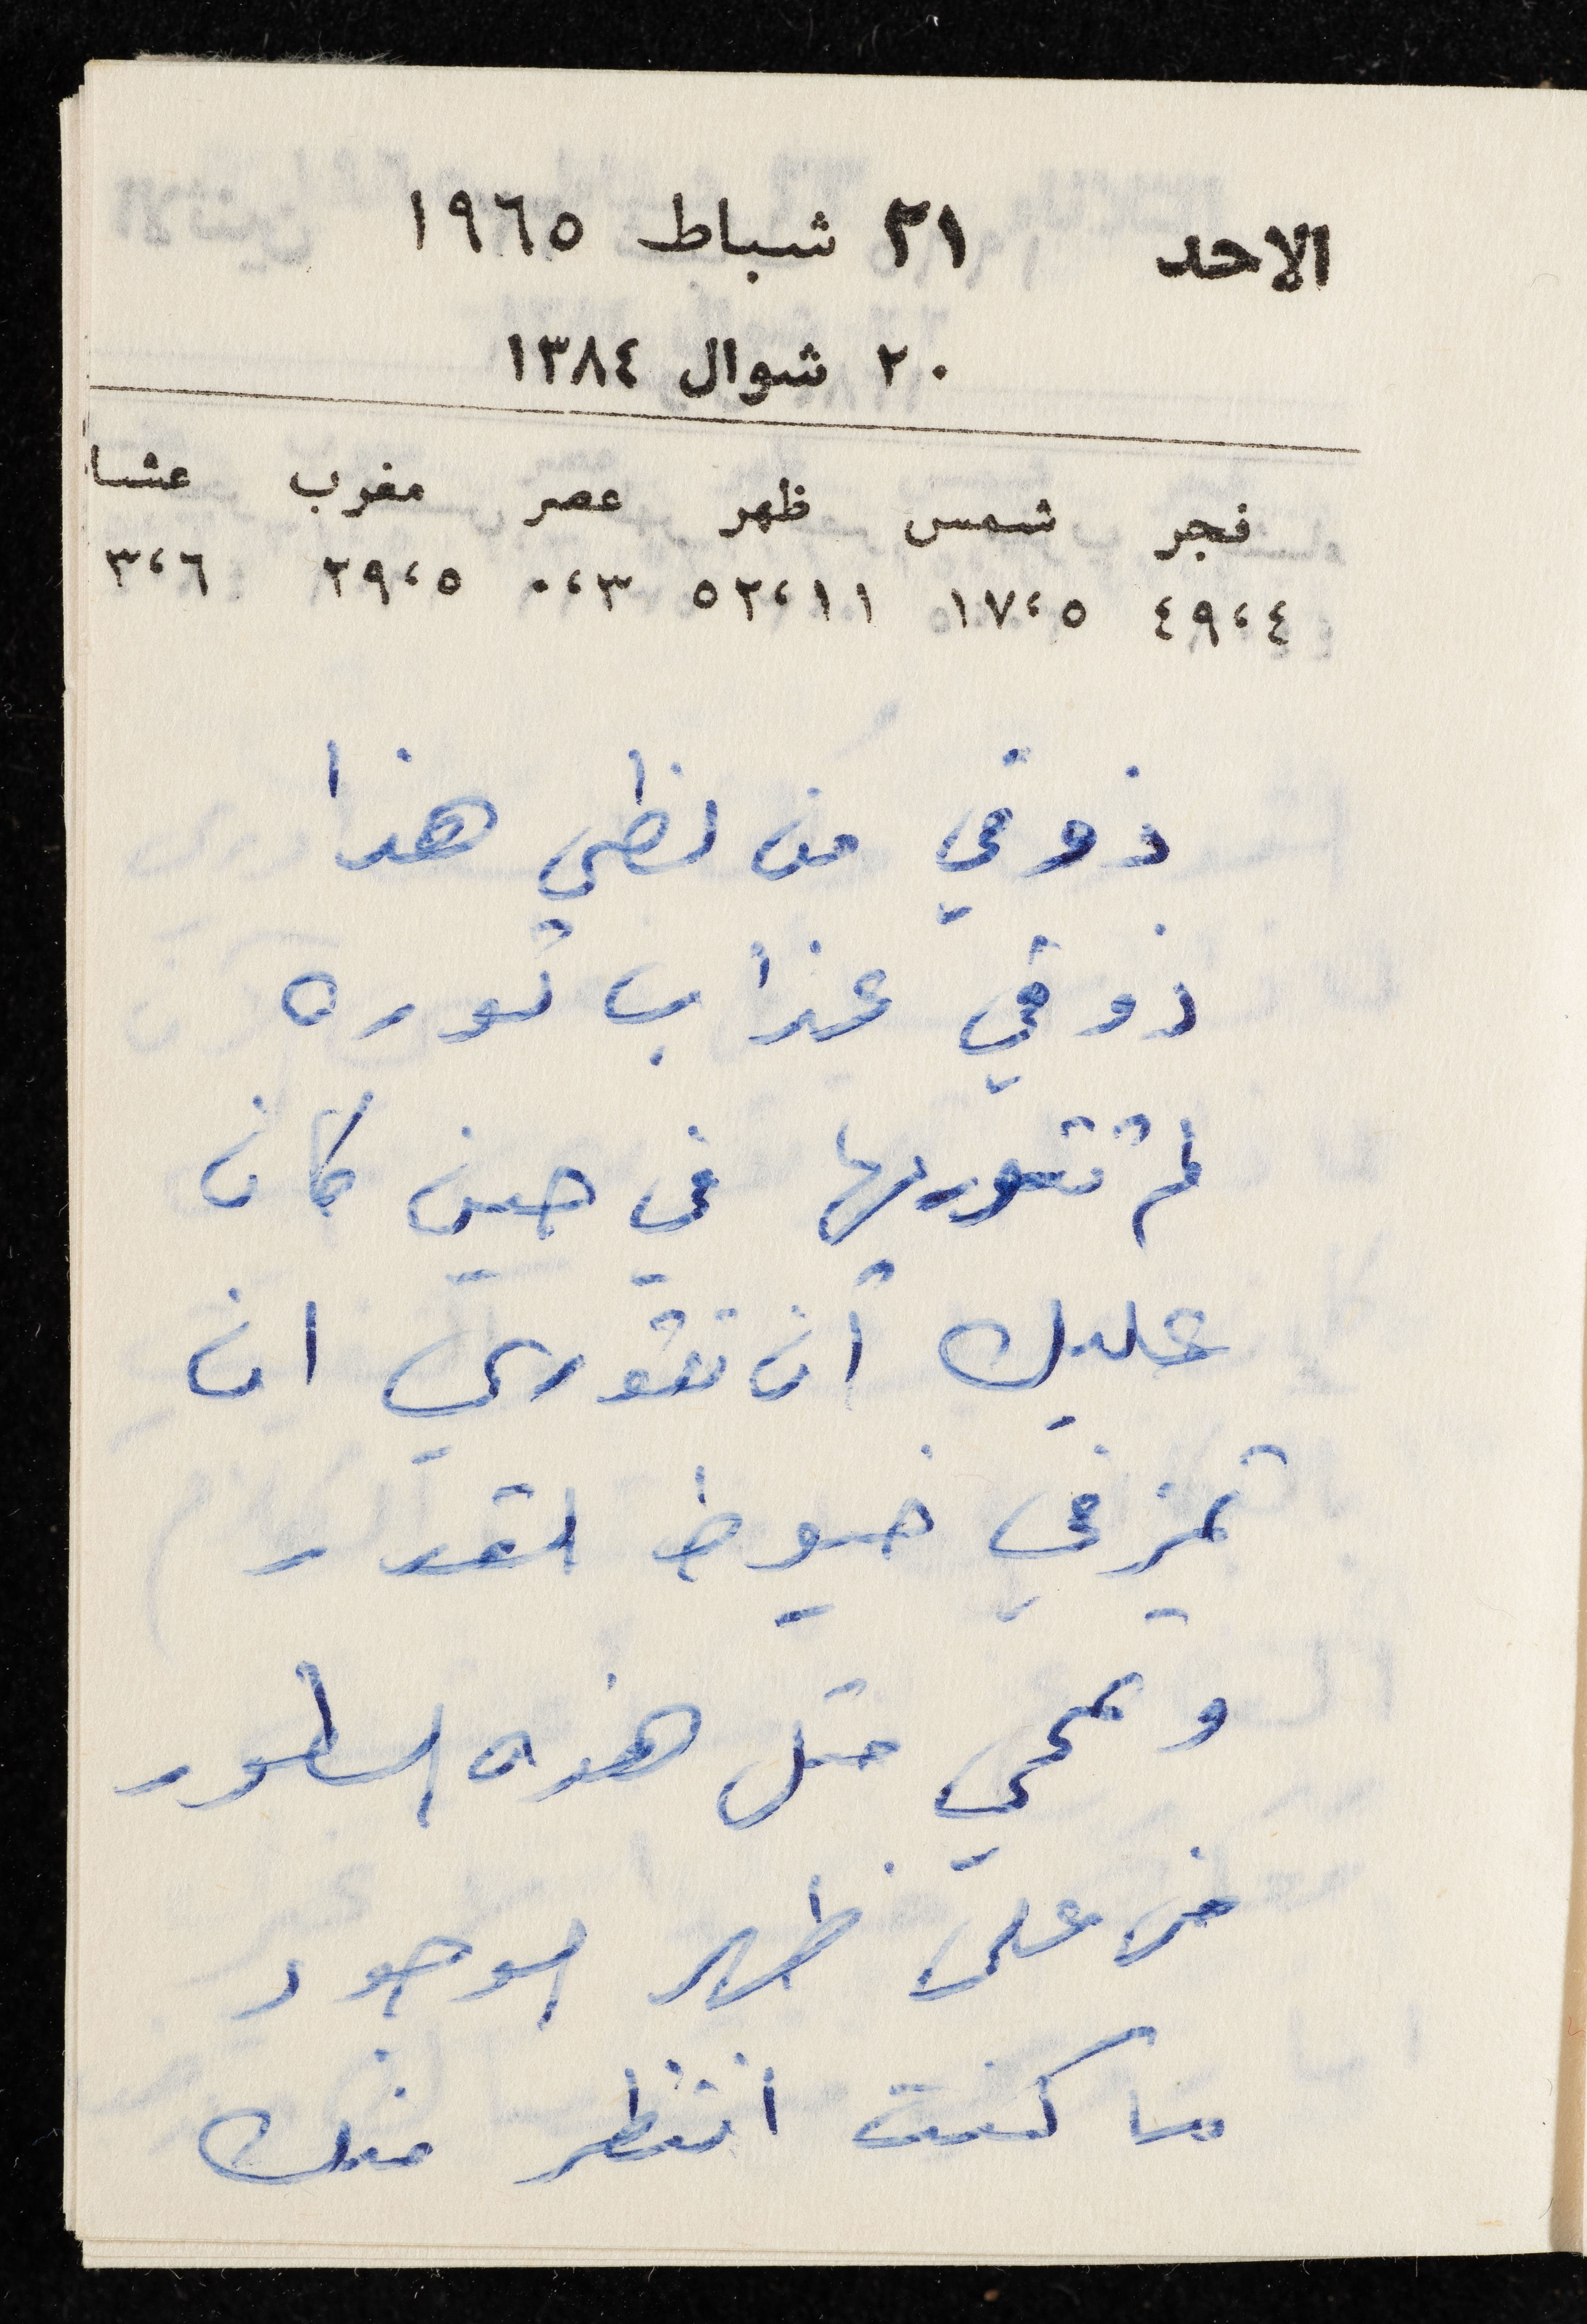 الاحد ٢١ شباط ١٩٦٥
٢٠ شوال ١٣٨٤
فجر شمس ظهر عصر مغرب عشا
٤٩،٤ ١٧،٥ ٥٢،١١ ٠،٣ ٢٩،٥ ٣،٦
ذوقي من لظى هذا
ذوقي عذاب ثوره
لم تثوريها في حين كان
عليك أن تثوري ان
تمزقي خيوط القدر
وتمحي مثل هذه السطور
من على ظهر الوجود
ما كنت انتظر منك